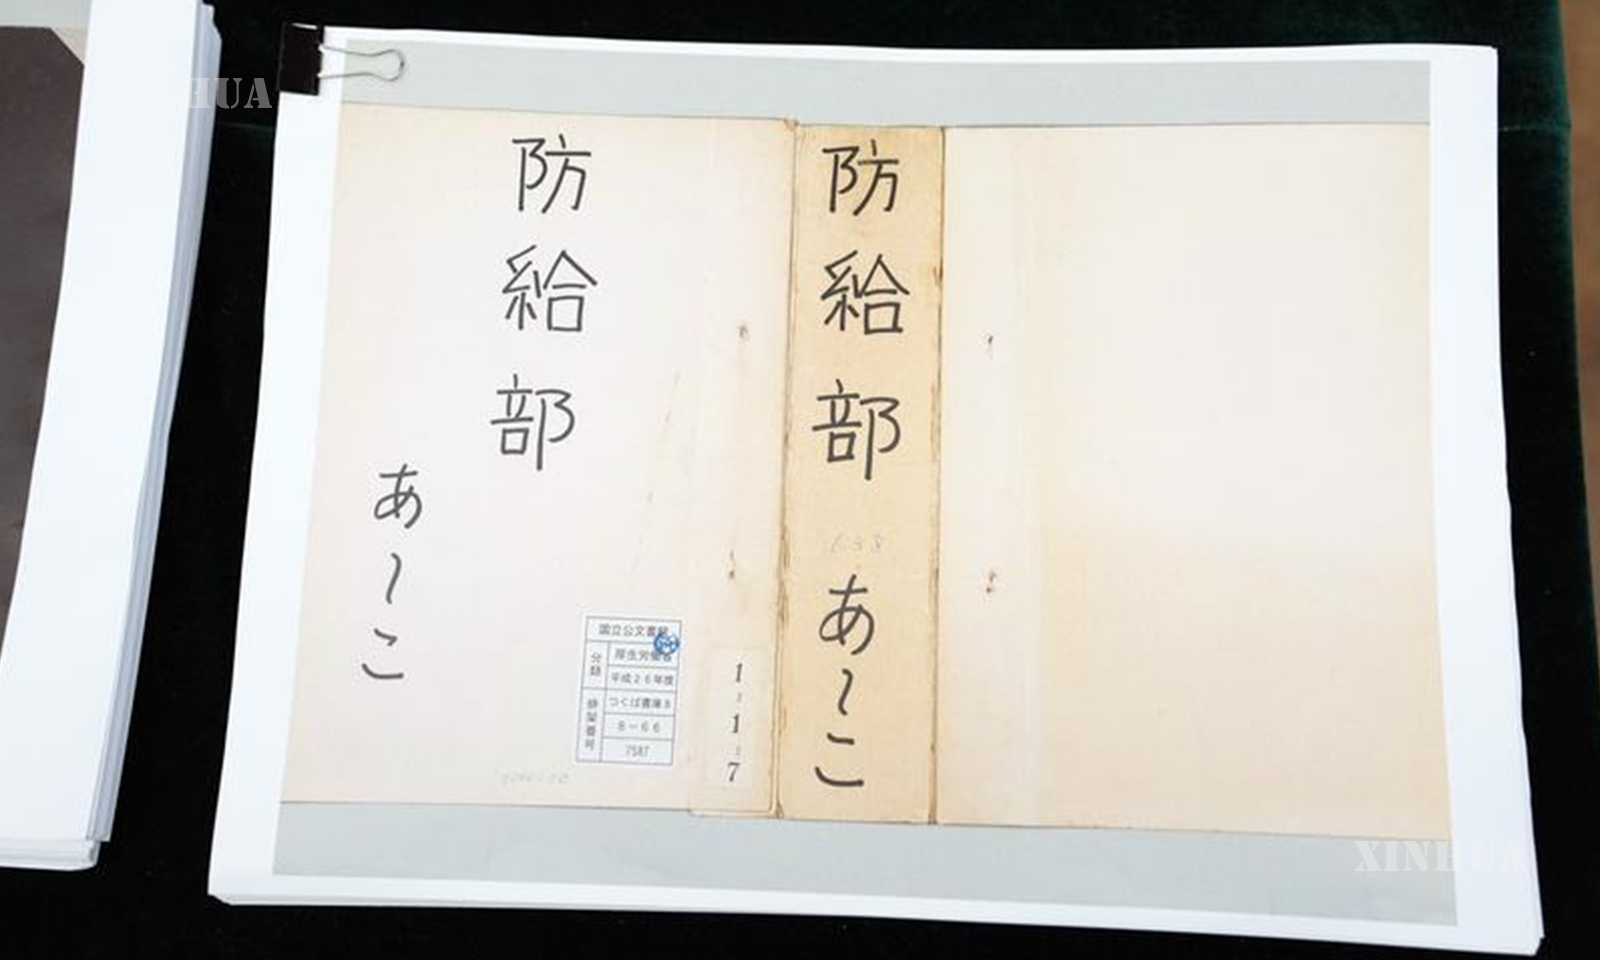 防給部
あ~こ
国立公文書館
分類
厚生労働省
平成26年度
排架番号
つくば書庫8
8-66
7587
1
1
7
防給部
あ~こ
HUA
XINHUA